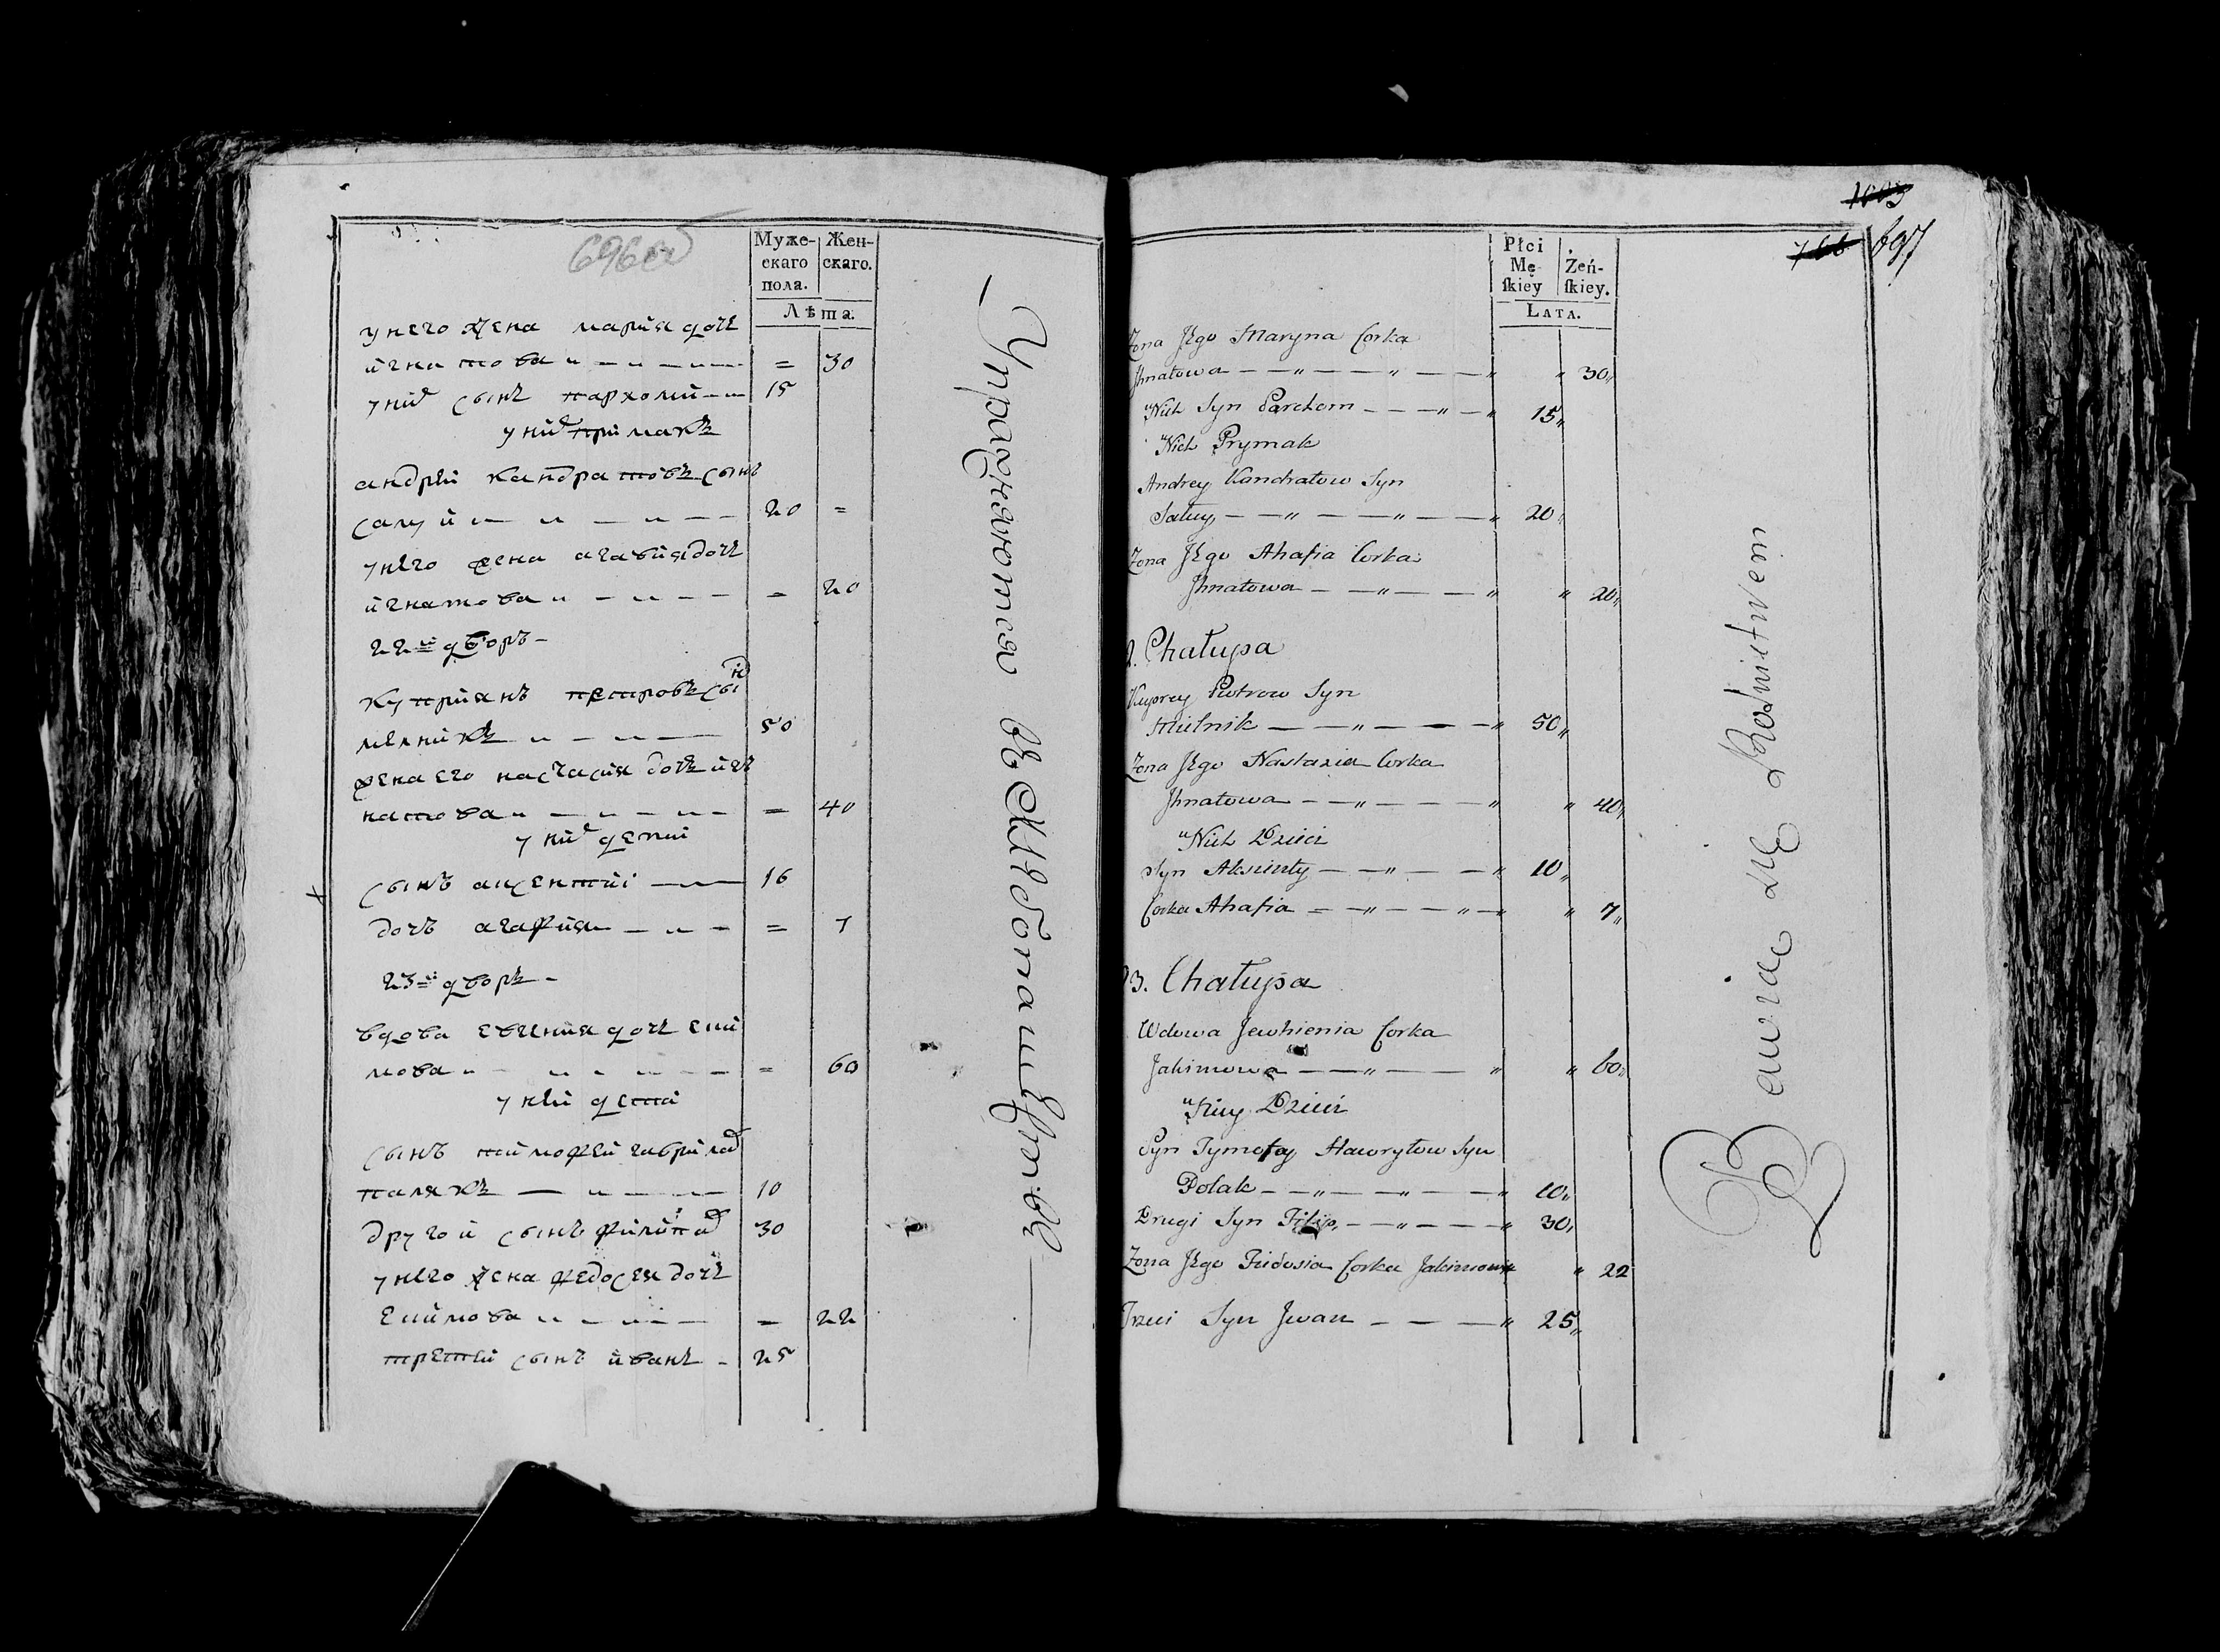 696об
Муже-
скаго
пола.
Жен-
скаго.
Лѣта.
у него жена мария дочь
игнатова 30
у них сынъ пархомий 15
у них примакъ
андрѣй кандратовъ сынъ
салуй 20
у него жена агафия дочь
игнатова 20
22й дворъ
куприянъ петровъ сын
мелникъ 50
жена его настасия дочь иг
натова 40
у них дети
сынъ аксентий 16
дочь агафия 7
23й дворъ
вдова евгения дочь еки
мова 60
у ней дети
сынъ тимофей гаврилов
палякъ 10
другой сынъ филипп 30
у него жена федосея дочь
екимова 22
третий сынъ иванъ 25
Упражняются въ хлебопашествѣ
1003
766 697
Płci
Mę-
ſkiey
Żeń-
ſkiey.
LATA.
Zona Jego Maryna Corka
Jhnatowa 30
u Nich Syn Parchom 15
u Nich Prymak
Andrey Kondratow Syn
Sałuy 20
Zona Jego Ahafia Corka
Jhnatowa 20
2. Chałupa
Kuprey Piotrow Syn
Mielnik 50
Zona Jego Nastazia Corka
Jhnatowa 40
u Nich Dzieci
Syn Aksienty 10
Corka Ahafia 7
23. Chałupa
Wdowa Jewhienia Corka
Jakimowa 60
u Niey Dzieci
Syn Tymofey Hawryłow Syn
Polak 10
Drugi Syn Filip 30
Zona Jego Fiedosia Corka Jakimowa 22
Trzeci Syn Jwan 25
Bawią się Rolnictwem